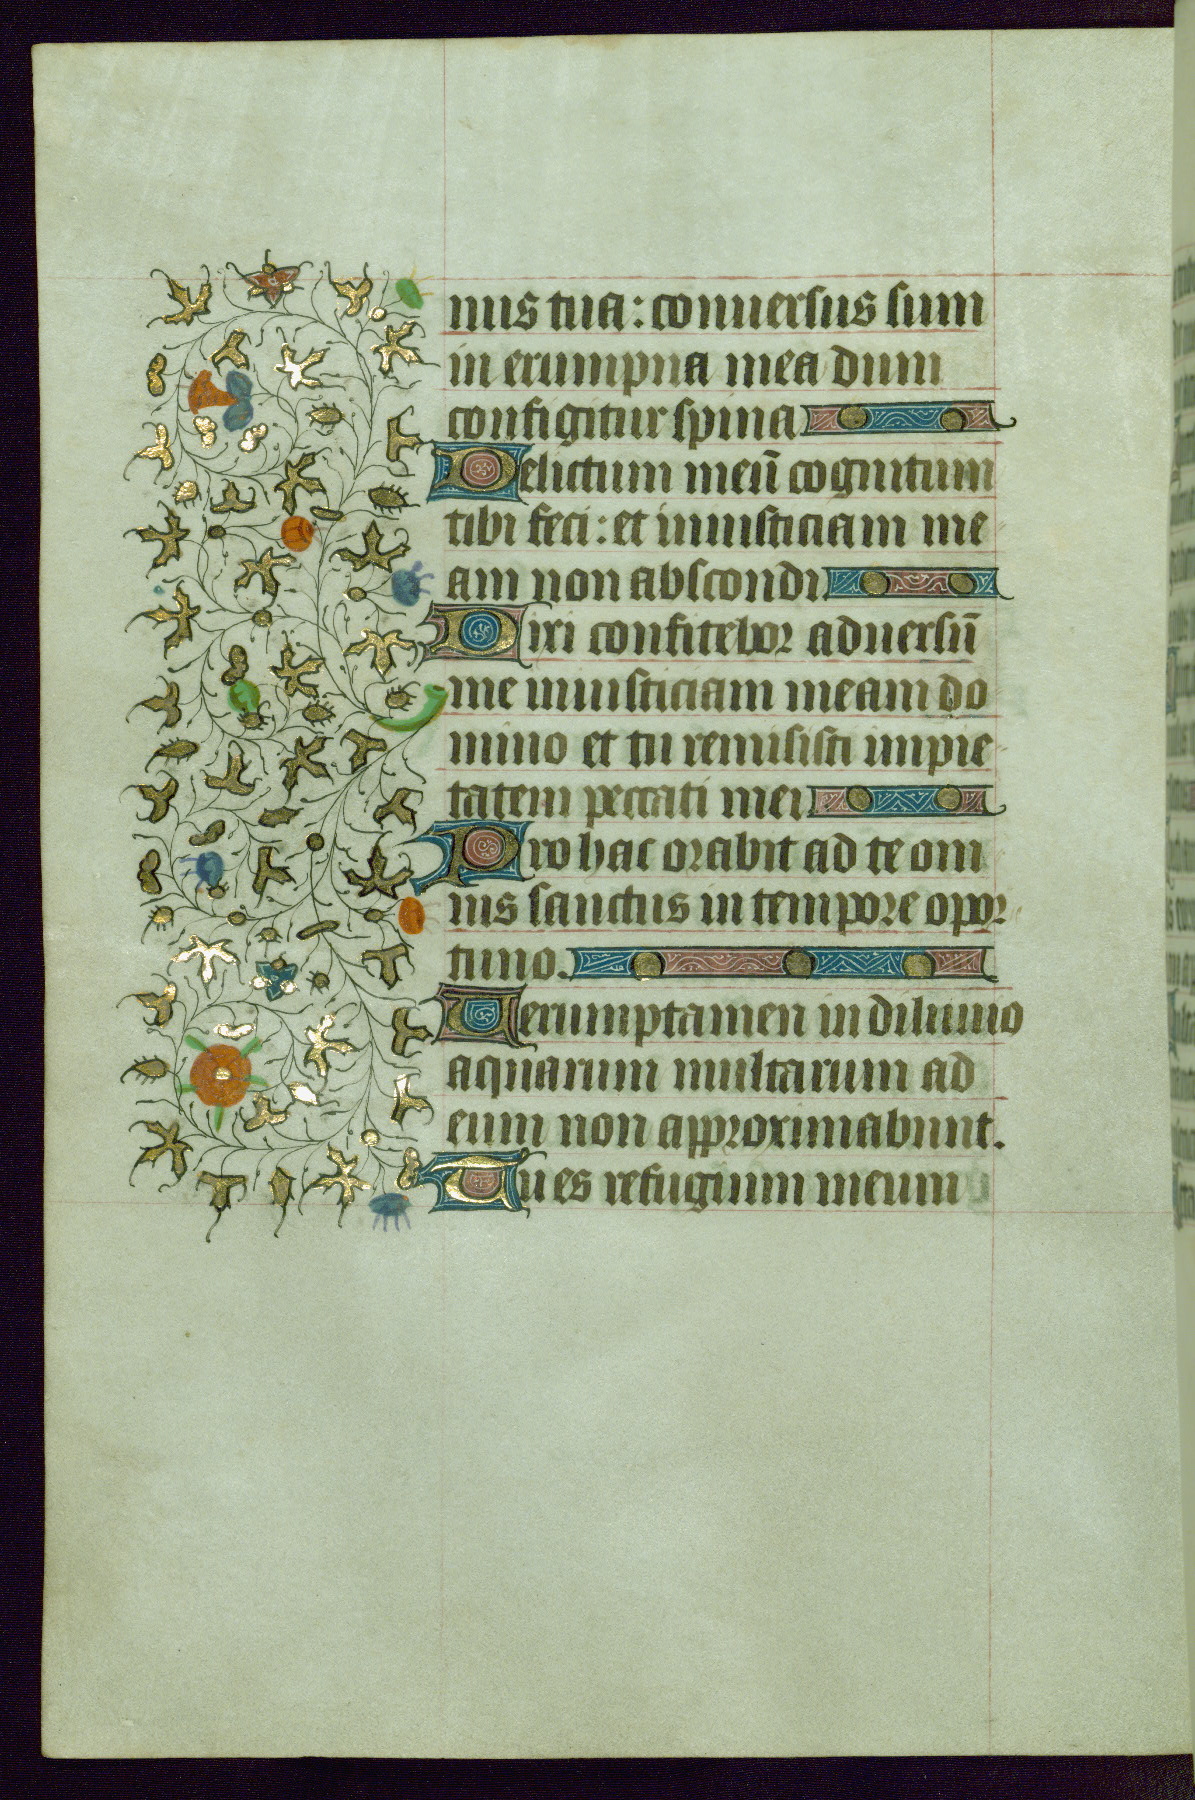 nus tua: conuersus sum
in erumpna mea dum
configitur spina
Delictum meū cognitum
tibi feci: et iniusticiam me
am non abscondi
Dixi confitebor aduersū
me iniusticiam meam do
mino et tu remisisti impie
tatem peccati mei
Pro hac orabit ad te om
nis sanctus in tempore opor
tuno.
Uerumptamen in diluuio
aquarum multarum ad
eum non approximabunt.
Tu es refugium meum